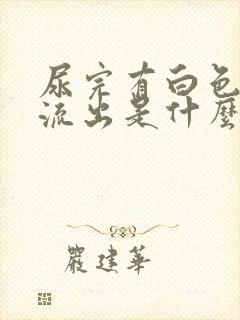 尿完有白色
流出是什麼
嚴建華